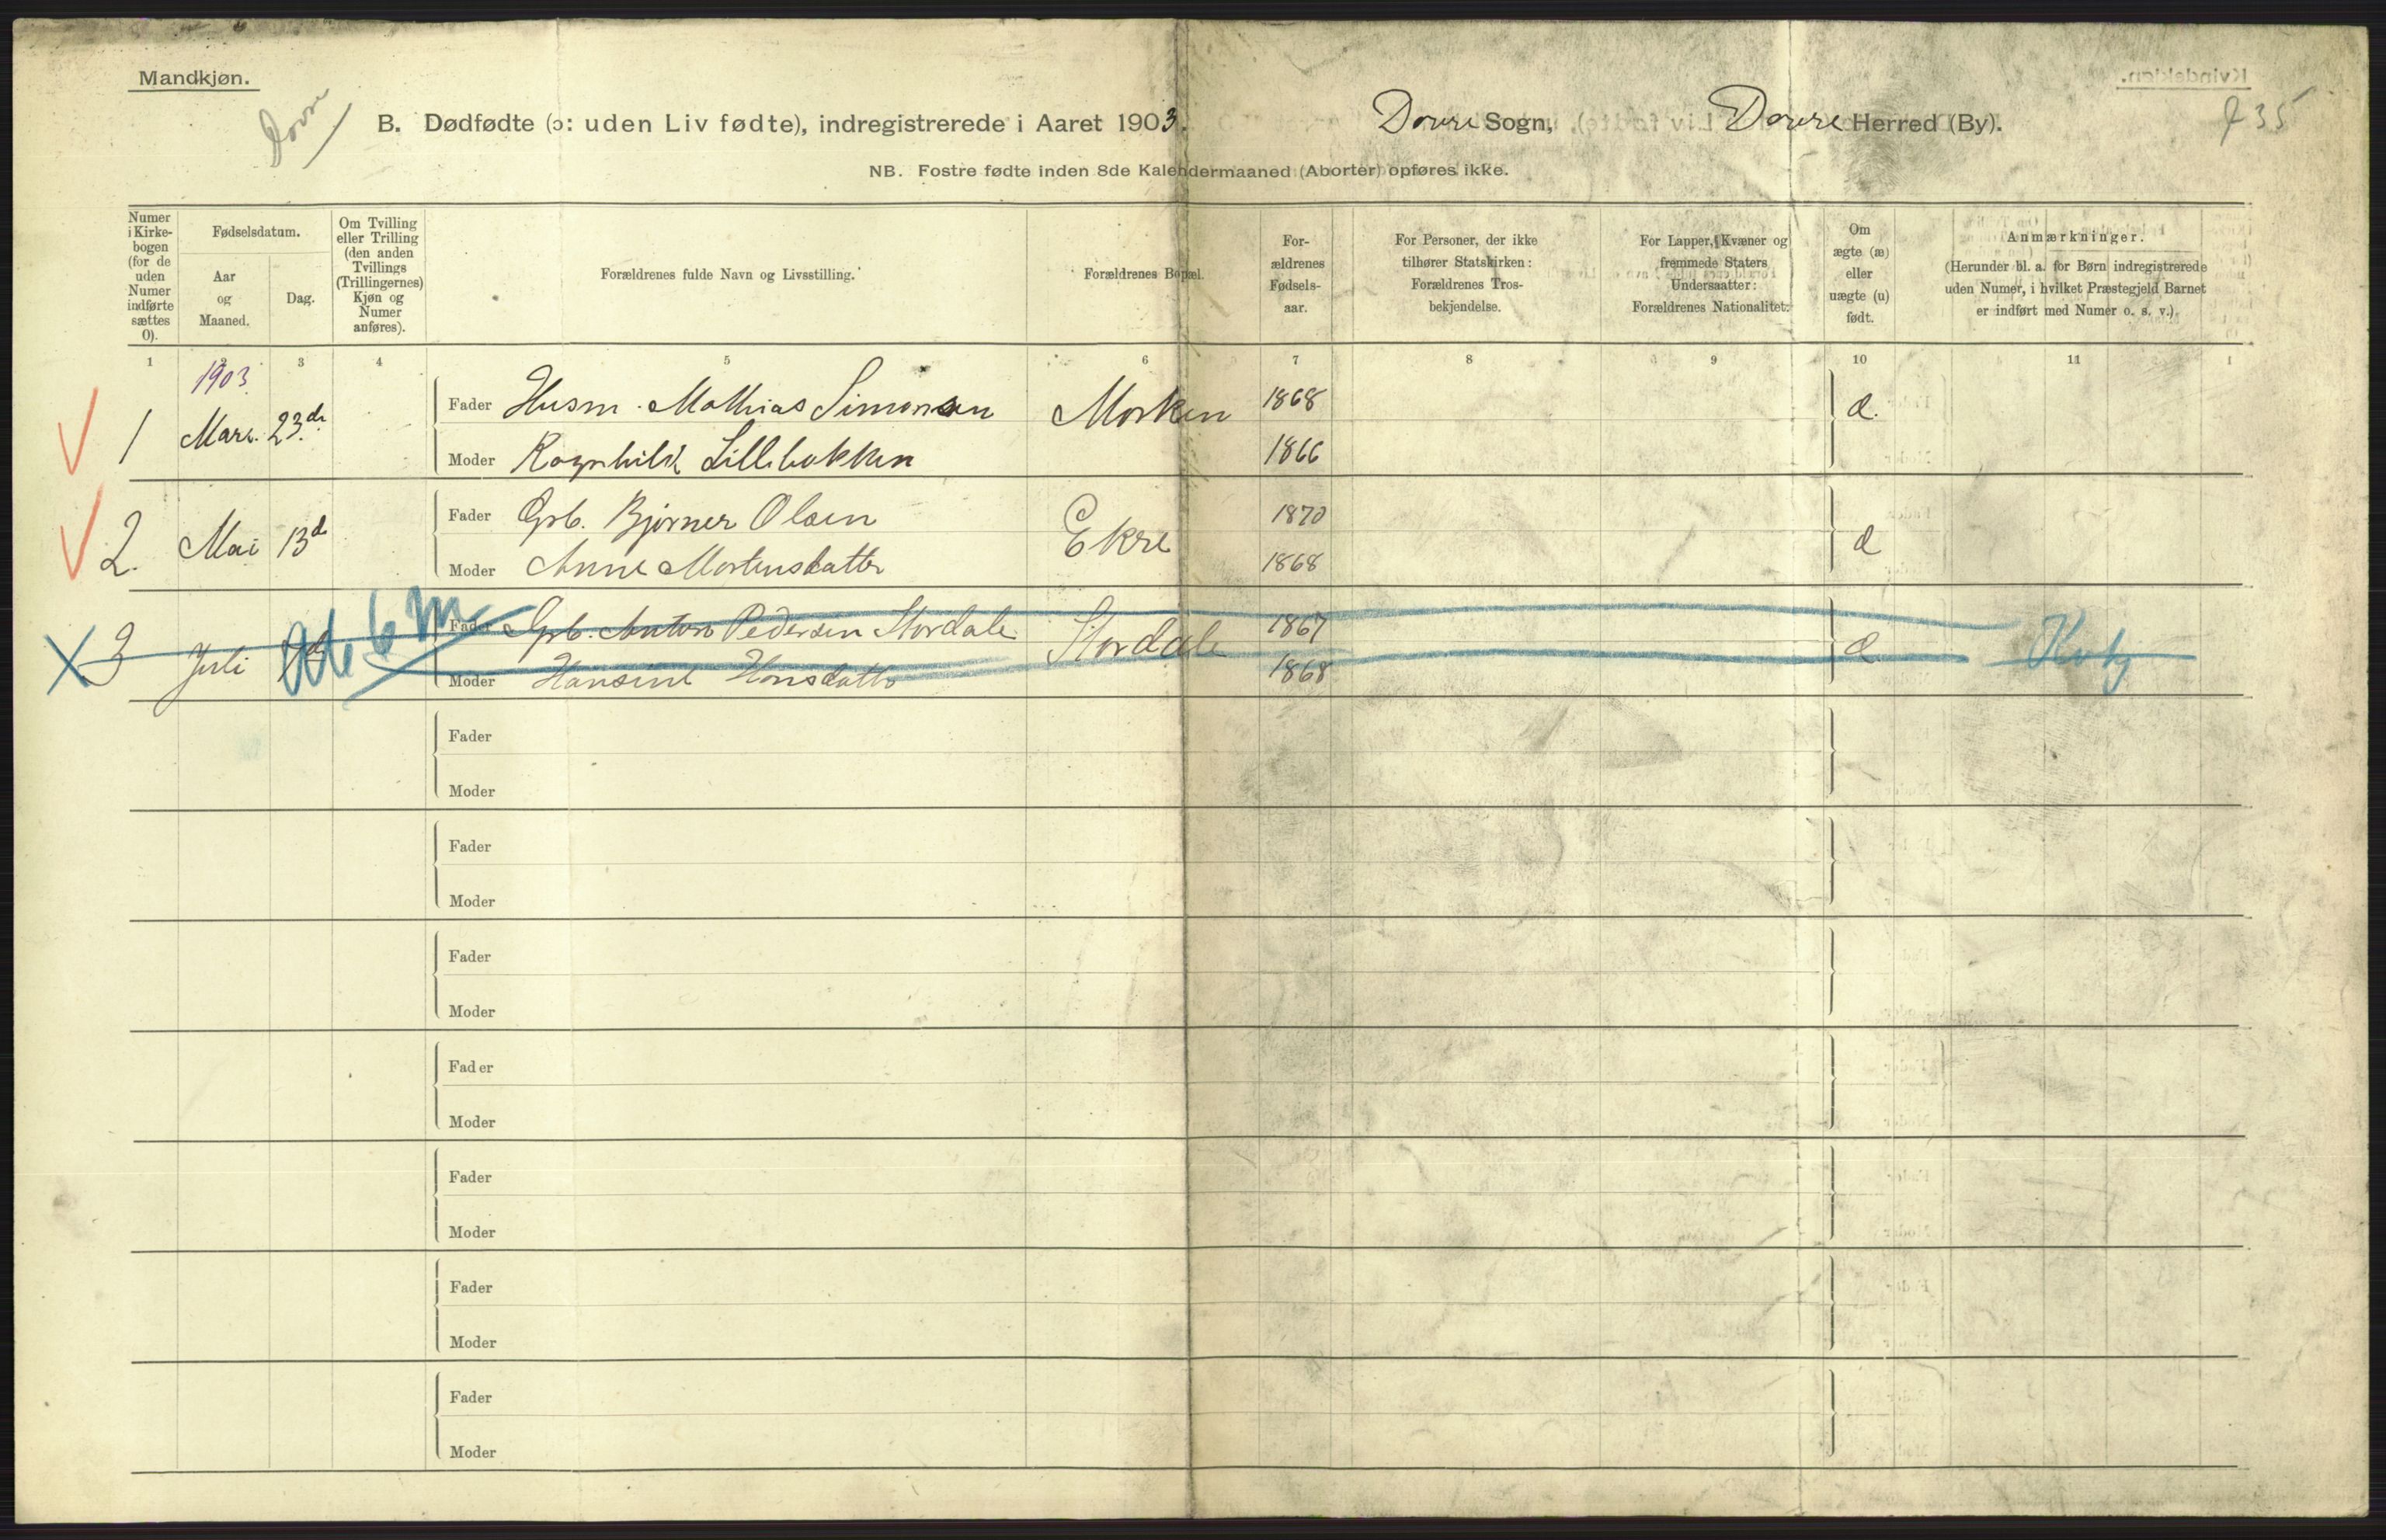 Mandkjøn.
Dovre
B. Dødfødte (ɔ: uden Liv fødte), indregistrerede i Aaret 1903. Dovre Sogn, Dovre Herred (By).
NB. Fostre fødte inden 8de Kalendermaaned (Aborter) opføres ikke.
Numer i Kirke-bogen (for de uden Numer indførte sættes 0).
Fødselsdatum.
Aar og Maaned.
Dag.
Om Tvilling eller Trilling (den anden Tvillings (Trillingernes) Kjøn og Numer anføres).
Forældrenes fulde Navn og Livsstilling.
Forældrenes Bopæl.
For-ældrenes Fødsels-aar.
For Personer, der ikke tilhører Statskirken: Forældrenes Tros-bekjendelse.
For Lapper, Kvæner og fremmede Staters Undersaatter: Forældrenes Nationalitet.
Om ægte (æ) eller uægte (u) født.
Anmærkninger.
(Herunder bl. a. for Børn indregistrerede uden Numer, i hvilket Præstegjeld Barnet er indført med Numer o. s. v.).
1 3 4 5 6 7 8 9 10 11
1903
1 Mars. 23.de Fader Husm. Mathias Simonsen Morken 1868 æ.
Moder Ragnhild Lillebakken 1866
2. Mai 13d Fader Grb. Bjørner Olsen Ekre 1870 æ
Moder Anne Mortensdatter 1868
3 Juli 6 M Fader Grb. Anton Pedersen Stordale Stordale 1867 æ
Moder Hansine Hansdatter 1868
Fader
Moder
Fader
Moder
Fader
Moder
Fader
Moder
Fader
Moder
Fader
Moder
Fader
Moder